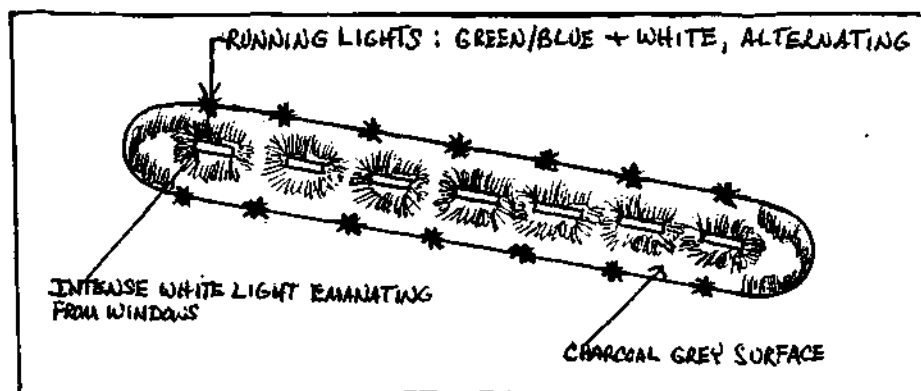 RUNNING LIGHTS : GREEN/BLUE + WHITE, ALTERNATING
INTENSE WHITE LIGHT EMANATING
FROM WINDOWS
CHARCOAL GREY SURFACE